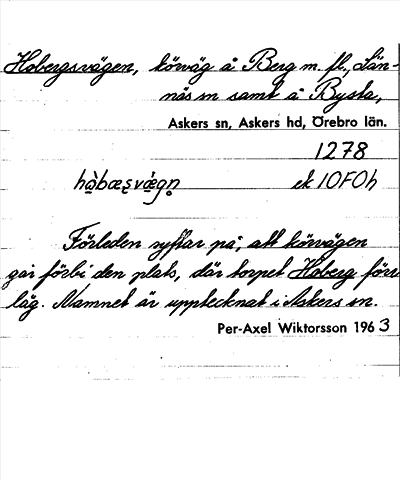 Hobergsvägen, körväg å Berg m. fl., Län-
näs sn samt å Bysta,
Askers sn, Askers hd, Örebro län.
1278
hò̱bæṣvä́gn̥ ek 10F0h
Förleden syftar på, att körvägen
går förbi den plats, där torpet Hoberg förr
låg. Namnet är upptecknat i Askers sn.
Per-Axel Wiktorsson 1963